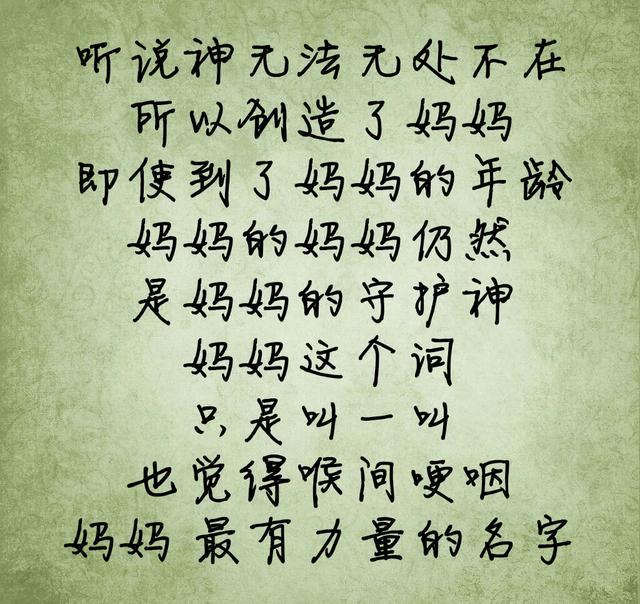 听说神无法无处不在
所以创造了妈妈
即使到了妈妈的年龄
妈妈的妈妈仍然
是妈妈的守护神
妈妈这个词
只是叫一叫
也觉得喉间哽咽
妈妈 最有力量的名字